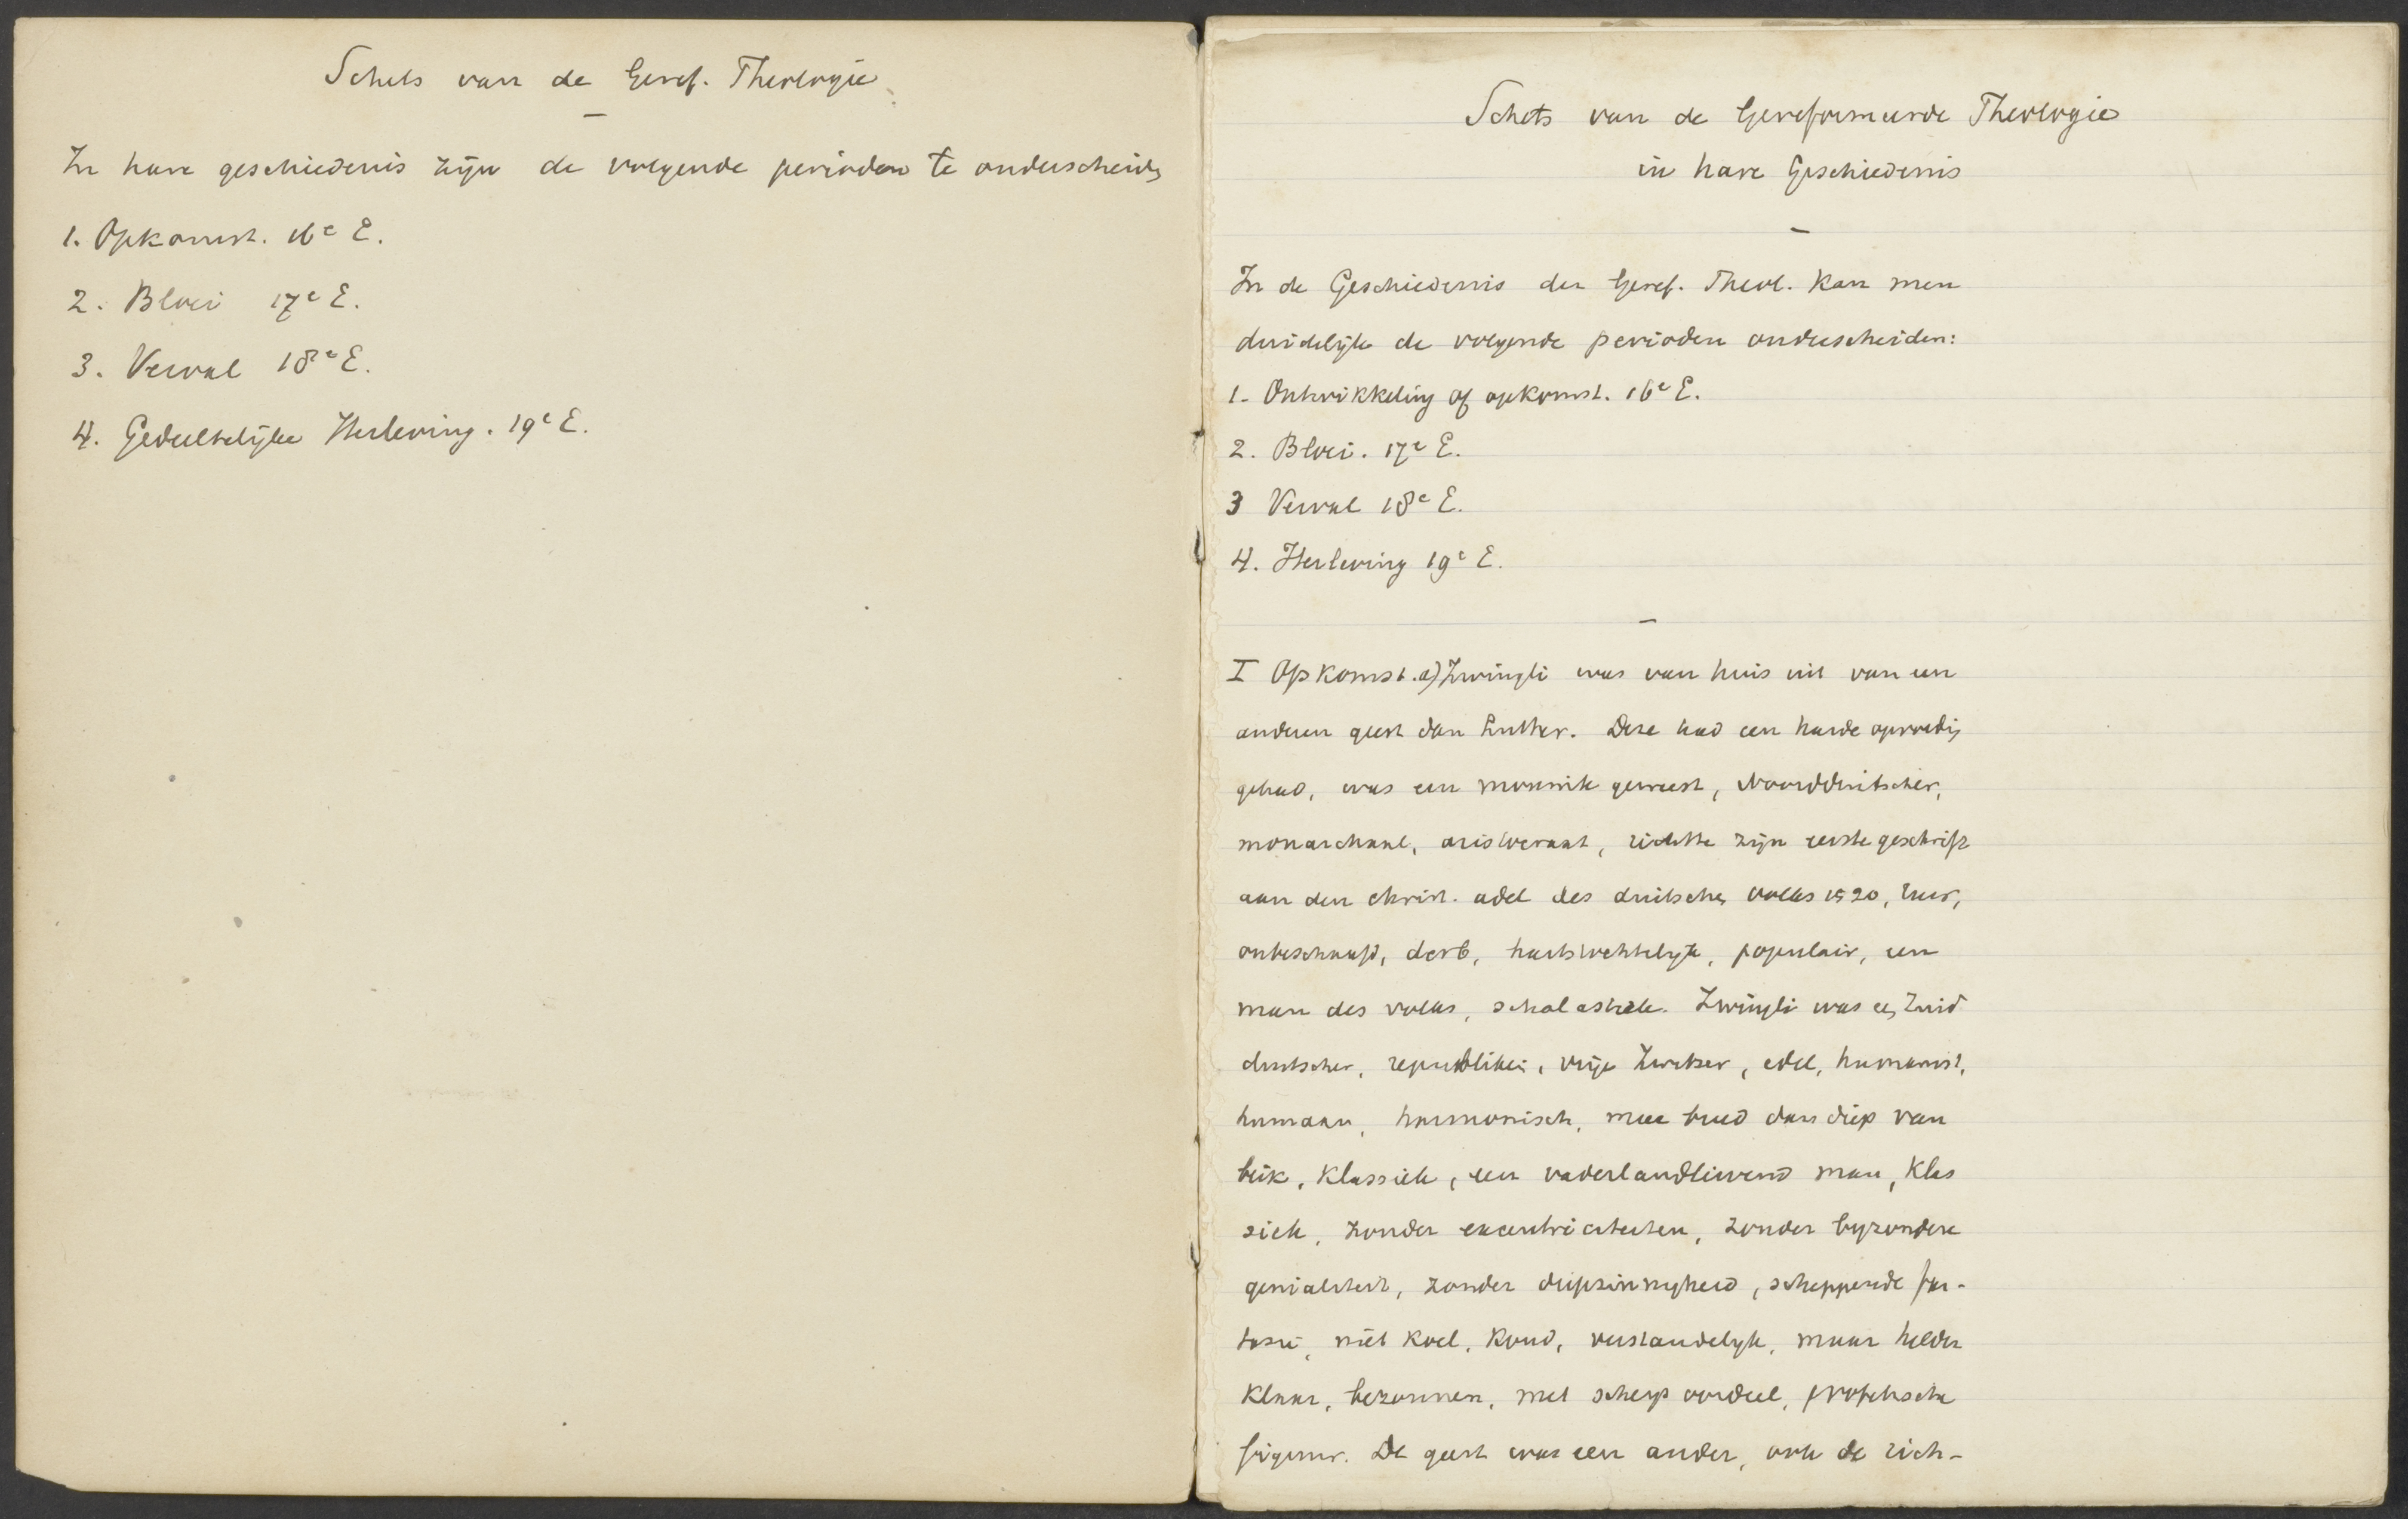 Schets van de Geref. Theologie
In hare geschiedenis zijn de volgende perioden te onderscheiden
1. Opkomst. 16e E.
2. Bloei 17e E.
3. Verval 18e E.
4. Gedeeltelijke Herleving. 19e E.
Schets van de Gereformeerde Theologie
in hare Geschiedenis
In de Geschiedenis der Geref. Theol. kan men
duidelijk de volgende perioden onderscheiden:
1. Ontwikkeling of opkomst. 16e E.
2. Bloei. 17e E.
3 Verval 18e E.
4. Herleving 19e E.
I Opkomst. a) Zwingli was van huis uit van een
anderen geest dan Luther. Deze had een harde opvoeding
gehad, was een monnik geweest, Noordduitscher,
monarchaal, aristocraat, richtte zijn eerste geschrift
aan den christ. adel des duitschen volks 1520,
onbeschaafd, derb, hartstochtelijk, populair, een
man des volks, scholastiek. Zwingli was een Zuid
duitscher, republikein, vrije Zwitser, edel, humanist,
humaan, harmonisch, meer breed dan diep van
blik, klassiek, een vaderlandlievend man, klas
siek, zonder excentriciteiten, zonder byzondere
genialiteit, zonder diepzinnigheid, scheppende fan-
tasie, niet koel, koud, verstandelyk, maar helder
klaar, bezonnen, met scherp oordeel, profetische
figuur. De geest was een ander, ook de rich-